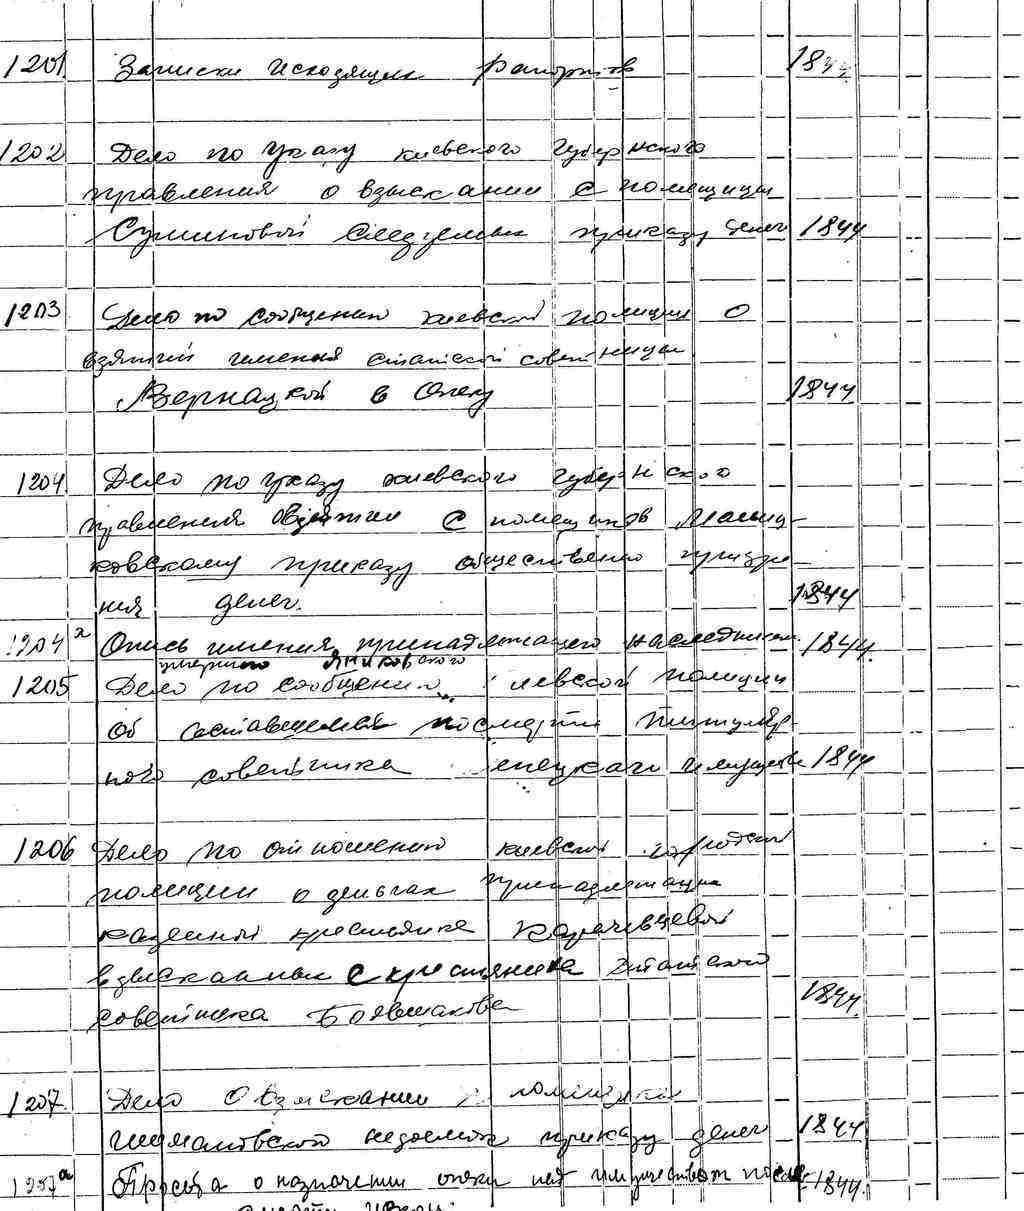 1201 Записки исходящих рапортов 1844
1202 Дело по указу киевского губернского
правления о взыскании с помещицы
Сулимовой следуемых приказу денег 1844
1203 Дело по сообщению киевской полиции о
взятии имения статской советницы
Вернацкой в опеку 1844
1204 Дело по указу киевского губернского
правления о взятии с помещиков
приказу общественно призре-
ния денег. 1844
1204а Опись имения, принадлежащего наследникам 1844.
умершего Яниковского
1205 Дело по сообщению киевской полиции
об оставшемся после смерти титуляр-
ного советника имуществе 1844
1206 Дело по отношению киевской городской
полиции о деньгах принадлежащих
казенной крестьянке Карачевцевой
взысканных с крестьянина статского
советника 1844.
1207 Дело о взыскании помещика
недоимок приказу денег 1844
1207а Просьба о назначении опеки над имуществом после 1844.
смерти